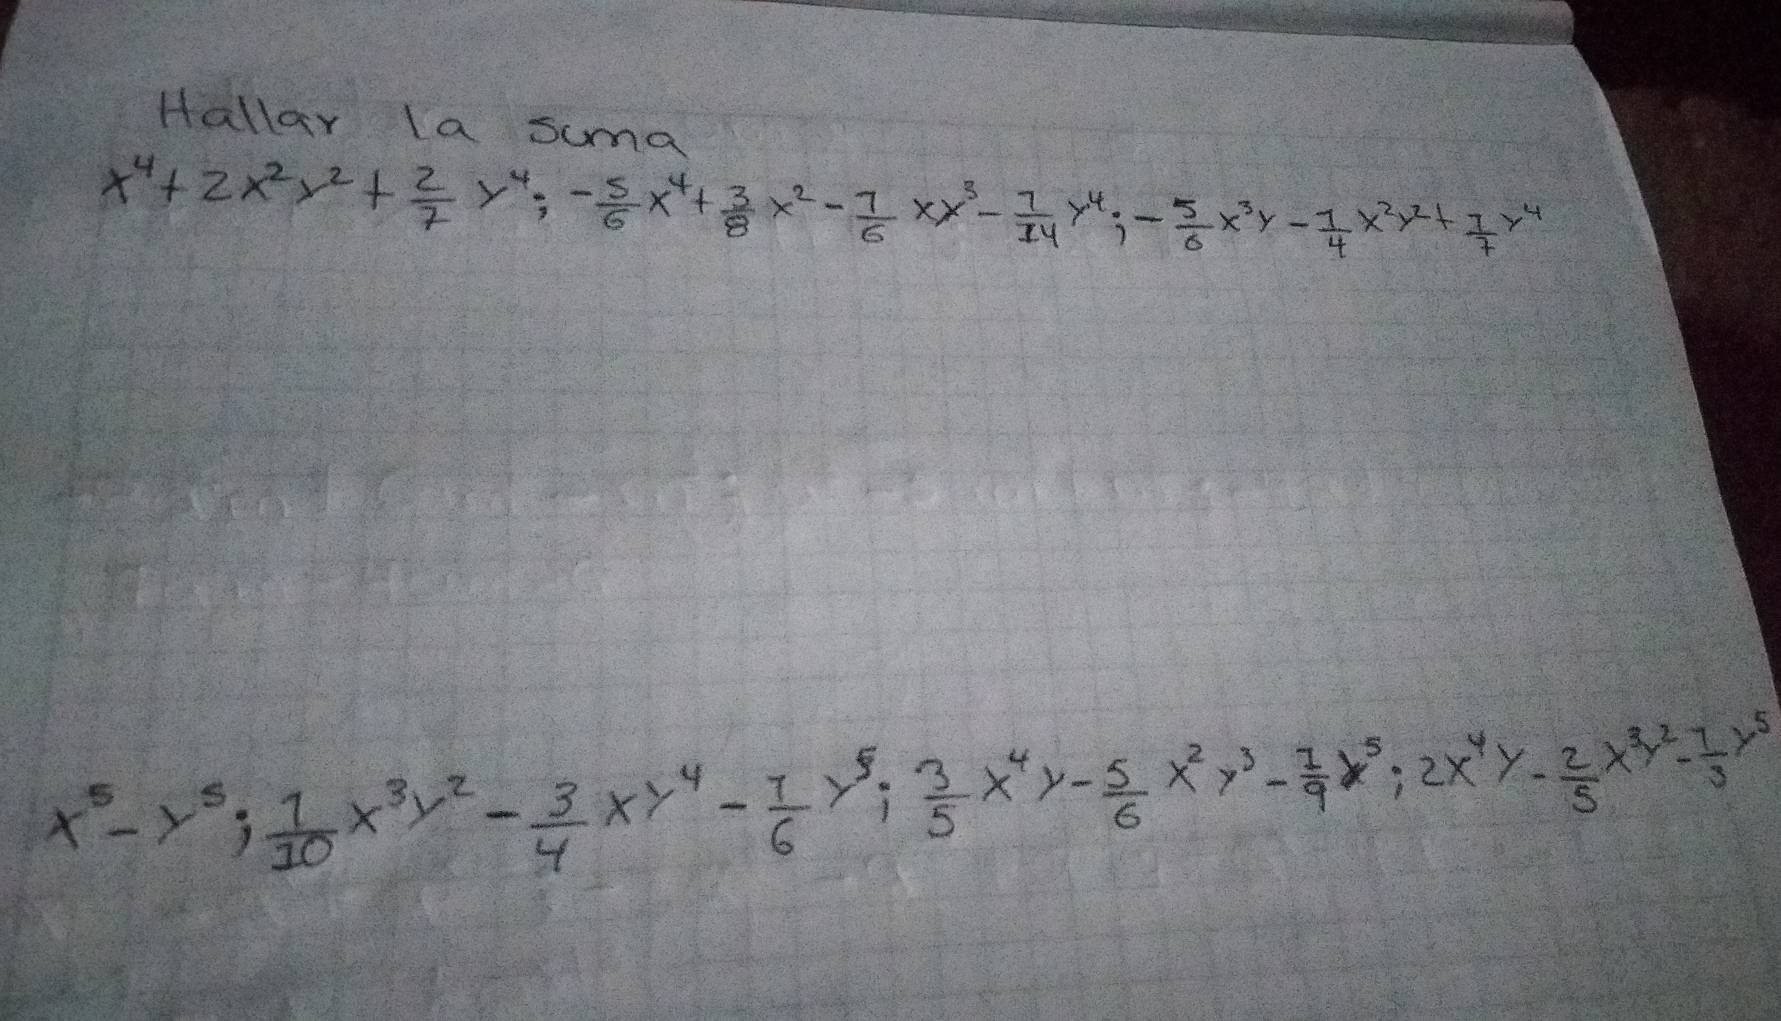 Hallar la suma
x⁴+2x²y²+2/7 y⁴; -5/6x⁴+3/8x²-1/6 xy³-1/14y⁴; -5/6x³y-1/4x²y²+1/7y⁴
x⁵-y⁵; 1/10x³y²-3/4xy⁴-1/6y⁵; 3/5x⁴y-5/6x²y³-1/9x⁵; 2x⁴y-2/5x³y²-1/3y⁵